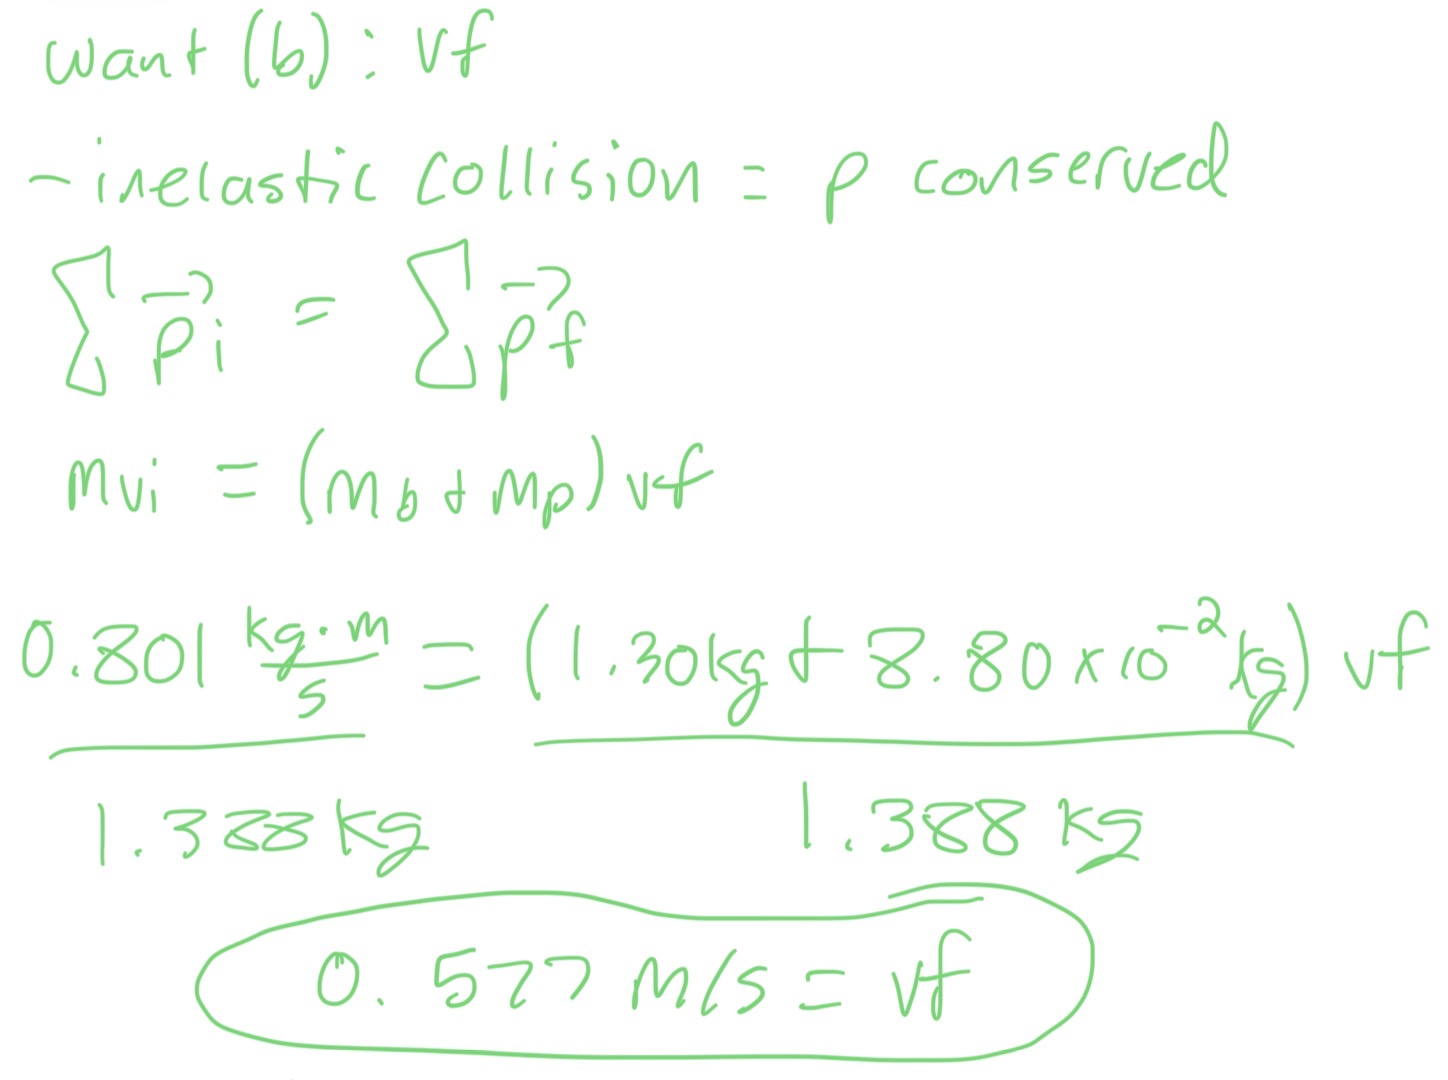 want (b): vf
- inelastic collision = p conserved
∑ p⃗i = ∑ p⃗f
mvi = (mb + mp) vf
0.801 kg·m/s = (1.30kg + 8.80 x 10⁻² kg) vf
1.388 kg 1.388 kg
0.577 m/s = vf